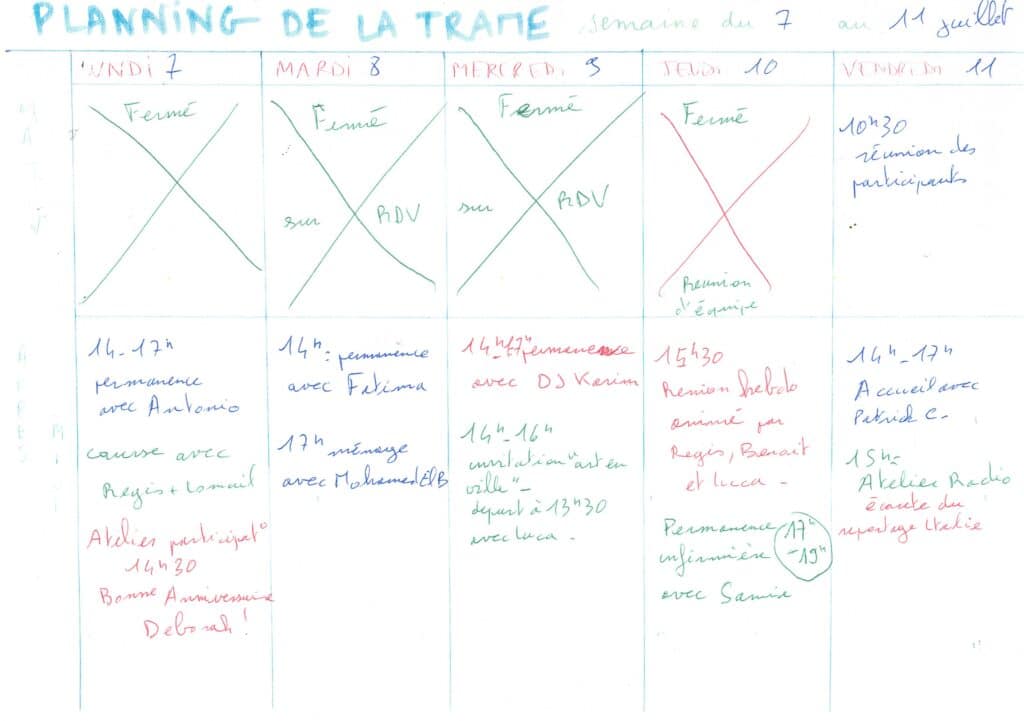 PLANNING DE LA TRAME semaine du 7 au 11 juillet
LUNDI 7
MARDI 8
MERCREDI 9
JEUDI 10
VENDREDI 11
MATIN
Fermé
Fermé
sur RDV
Fermé
sur RDV
Fermé
Reunion
d'équipe
10h30
réunion des
participants
14-17h
permanence
avec Antonio
course avec
Regis +
Atelier participat°
14h30
Bonne Anniversaire
Deborah!
14h: permanence
avec Fatima
17h ménage
avec Mohamed El B
14h-17h permanence
avec DJ Karim
14h-16h
invitation "art en
ville"-
départ à 13h30
avec Luca.
15h30
Renion hebdo
animé par
Regis, Benoit
et Luca -
Permanence 17h
infirmière -19h
avec Samia
14h-17h
Accueil avec
Patrick C-
15h-
Atelier Radio
écoute du
reportage Italie